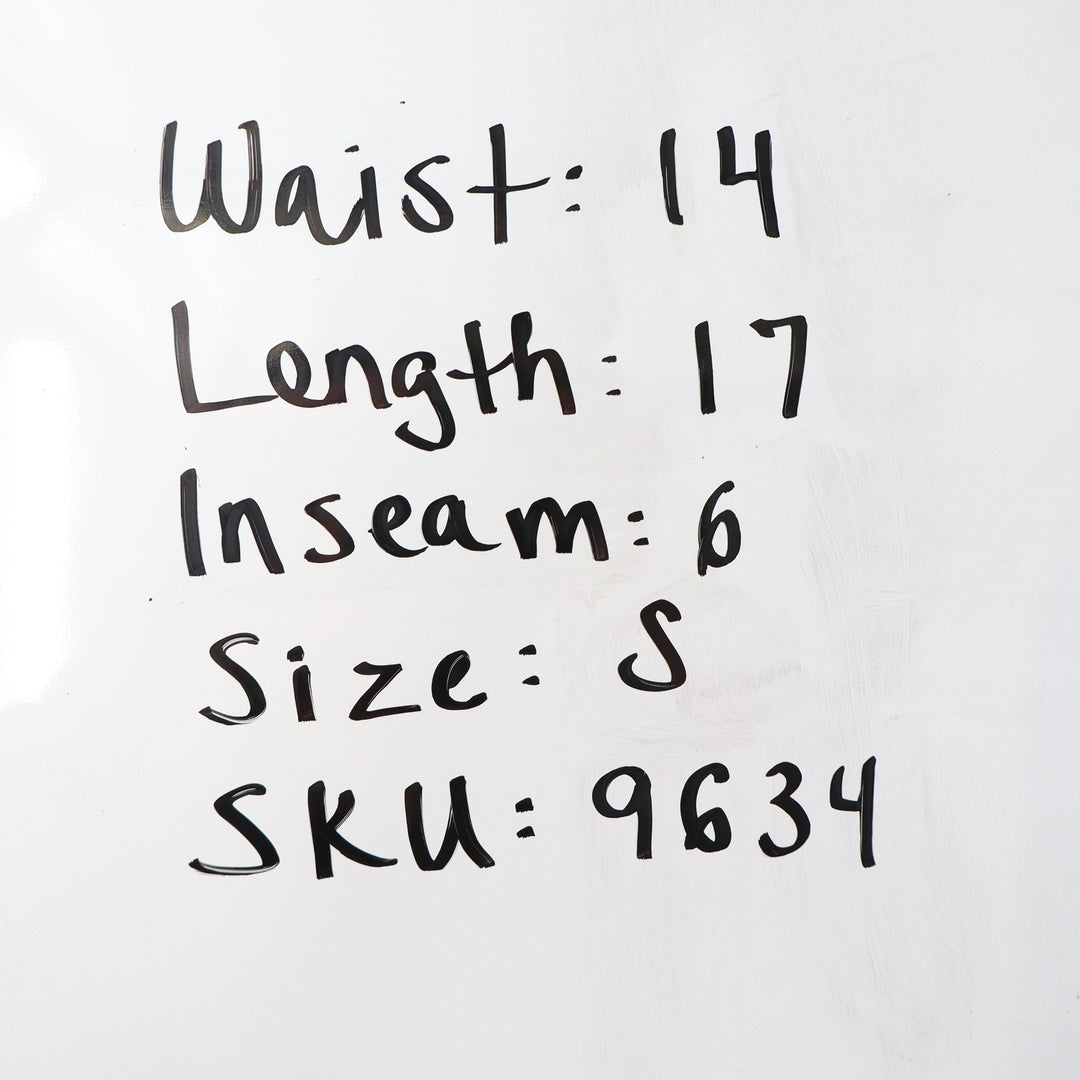 Waist: 14
Length: 17
Inseam: 6
Size: S
SKU: 9634